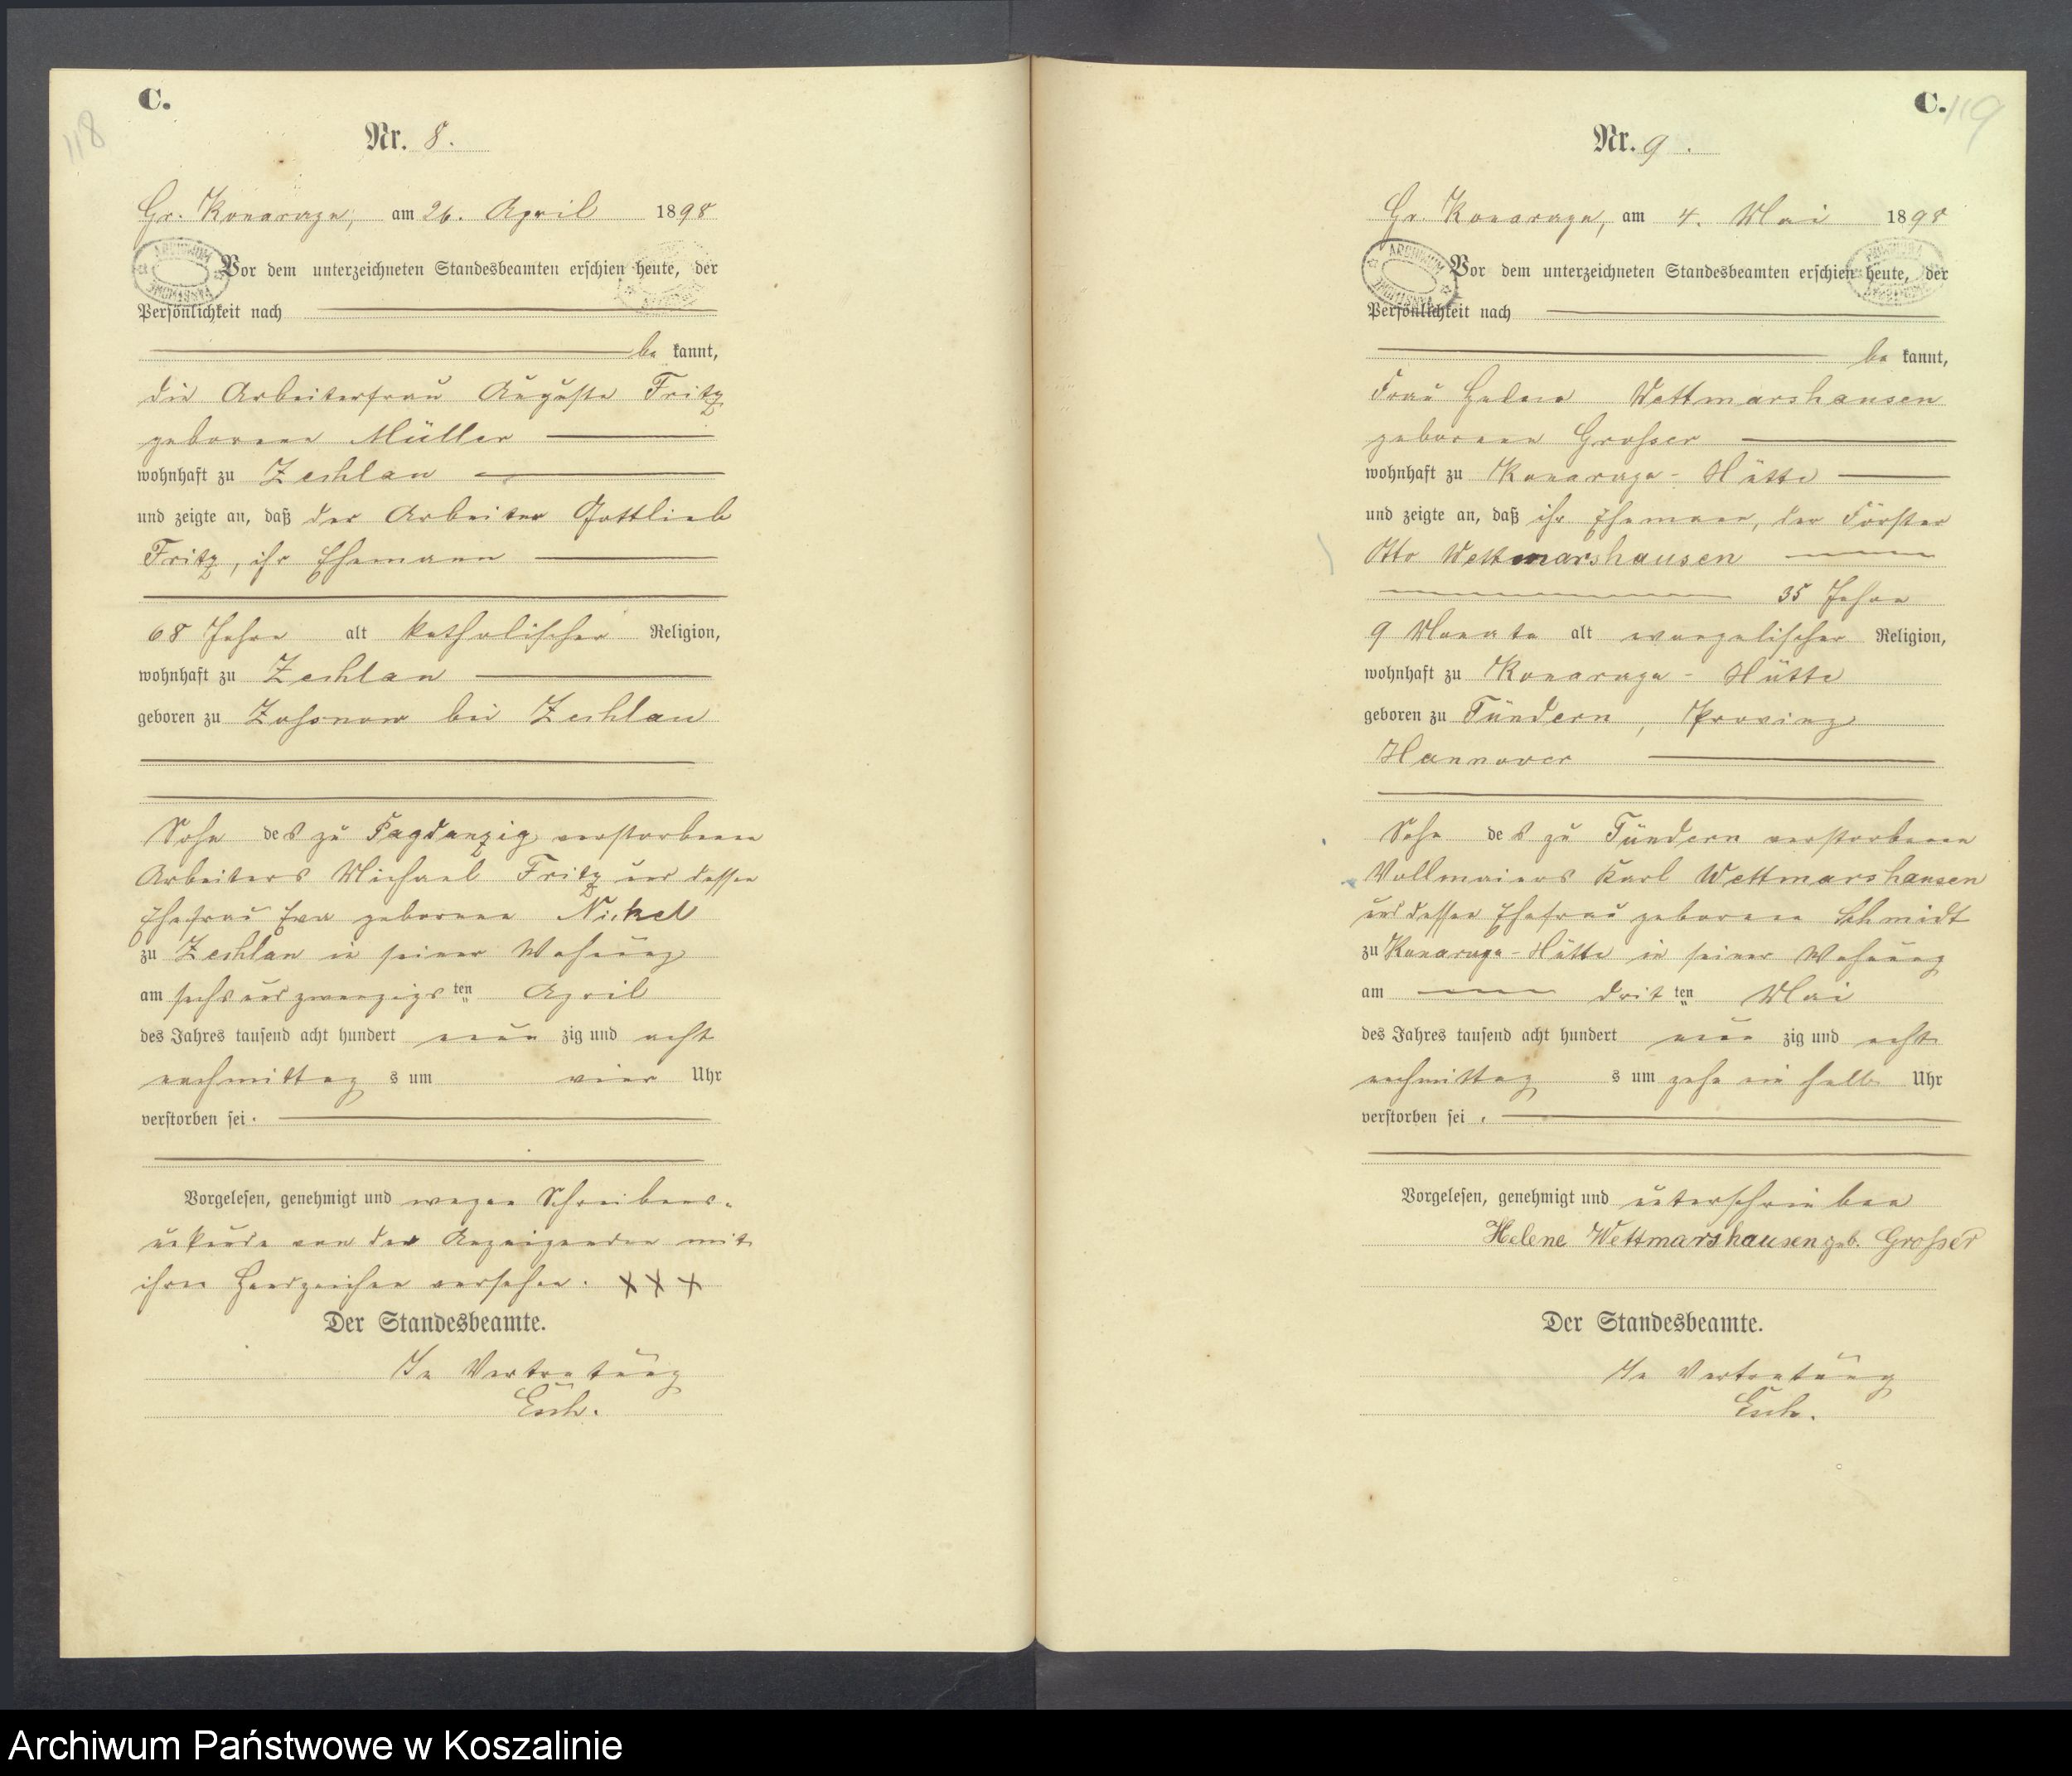 C.
118
Nr. 8.
Gr. Konarczyn, am 26. April 1898
Vor dem unterzeichneten Standesbeamten erschien heute, der
Persönlichkeit nach
be kannt,
die Arbeiterfrau Auguste Fritz
geborene Müller
wohnhaft zu Zechlau
und zeigte an, daß der Arbeiter Gottlieb
Fritz, ihr Ehemann
68 Jahre alt katholischer Religion,
wohnhaft zu Zechlau
geboren zu bei Zechlau
Sohn des zu verstorbenen
Arbeiters Michael Fritz und dessen
Ehefrau Eva geborene Nickel
zu Zechlau in seiner Wohnung
am sechsundzwanzigsten April
des Jahres tausend acht hundert neun zig und acht
nachmittag s um vier Uhr
verstorben sei.
Vorgelesen, genehmigt und wegen Schreibens-
unkunde von der Anzeigenden mit
ihren Handzeichen versehen. XXX
Der Standesbeamte.
In Vertretung
Esch.
C.
119
Nr. 9.
Gr. Konarczyn, am 4. Mai 1898
ARCHIWUM PAŃSTWOWE
Vor dem unterzeichneten Standesbeamten erschien heute, der
Persönlichkeit nach
be kannt,
Frau Helene Wettmarshausen
geborene Großer
wohnhaft zu Hütte
und zeigte an, daß ihr Ehemann, der Förster
Otto Wettmarshausen
35 Jahre
9 Monate alt evangelischer Religion,
wohnhaft zu Hütte
geboren zu Tündern, Provinz
Hannover
Sohn des zu Tündern verstorbenen
Vollmeiers Karl Wettmarshausen
und dessen Ehefrau geborene Schmidt
zu Hütte in seiner Wohnung
am dritten Mai
des Jahres tausend acht hundert neun zig und acht
nachmittag s um zehn ein halb Uhr
verstorben sei.
Vorgelesen, genehmigt und unterschrieben
Helene Wettmarshausen geb. Großer
Der Standesbeamte.
In Vertretung
Esch.
Archiwum Państwowe w Koszalinie